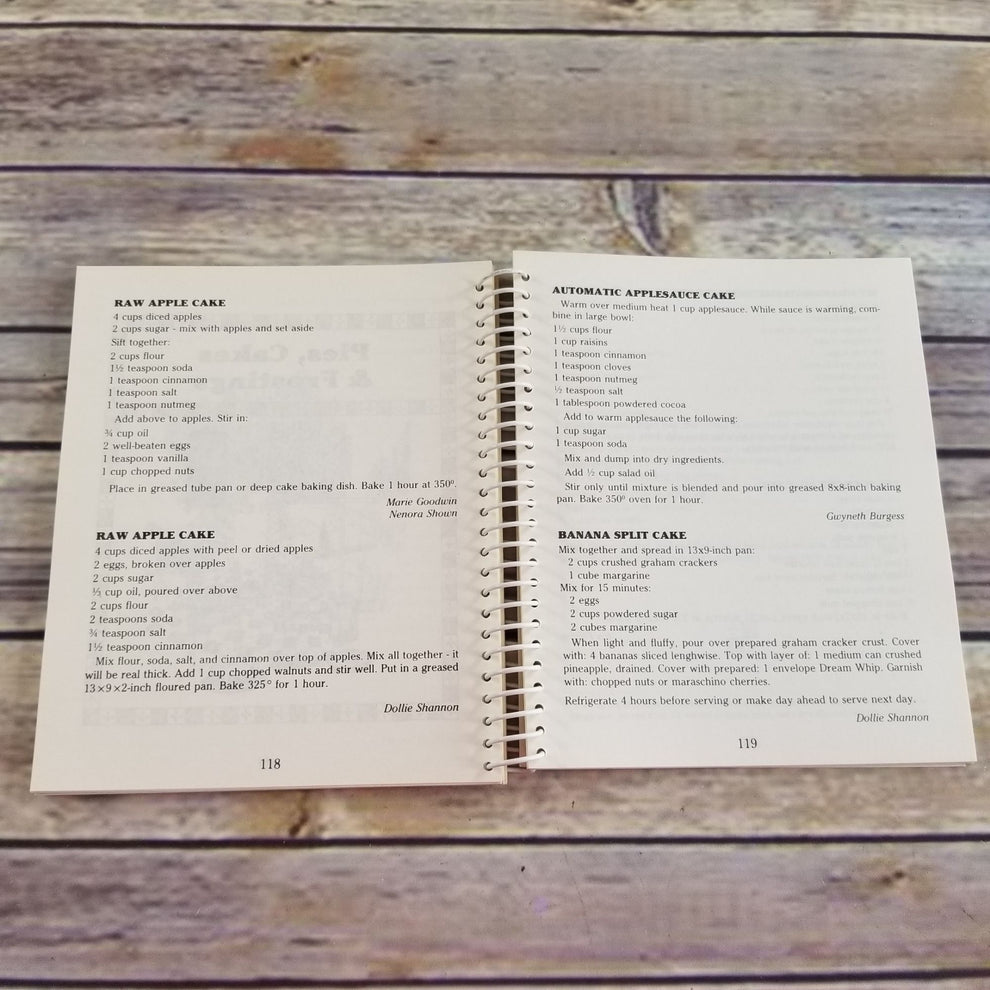 RAW APPLE CAKE
4 cups diced apples
2 cups sugar - mix with apples and set aside
Sift together:
2 cups flour
1½ teaspoon soda
1 teaspoon cinnamon
1 teaspoon salt
1 teaspoon nutmeg
Add above to apples. Stir in:
¾ cup oil
2 well-beaten eggs
1 teaspoon vanilla
1 cup chopped nuts
Place in greased tube pan or deep cake baking dish. Bake 1 hour at 350º.
Marie Goodwin
Nenora Shown
RAW APPLE CAKE
4 cups diced apples with peel or dried apples
2 eggs, broken over apples
2 cups sugar
cup oil, poured over above
2 cups flour
2 teaspoons soda
¾ teaspoon salt
1½ teaspoon cinnamon
Mix flour, soda, salt, and cinnamon over top of apples. Mix all together - it
will be real thick. Add 1 cup chopped walnuts and stir well. Put in a greased
13×9×2-inch floured pan. Bake 325° for 1 hour.
Dollie Shannon
118
Pies, Cakes
& Frosting
AUTOMATIC APPLESAUCE CAKE
Warm over medium heat 1 cup applesauce. While sauce is warming, com-
bine in large bowl:
1½ cups flour
1 cup raisins
1 teaspoon cinnamon
1 teaspoon cloves
1 teaspoon nutmeg
½ teaspoon salt
1 tablespoon powdered cocoa
Add to warm applesauce the following:
1 cup sugar
1 teaspoon soda
Mix and dump into dry ingredients.
Add ½ cup salad oil
Stir only until mixture is blended and pour into greased 8x8-inch baking
pan. Bake 350º oven for 1 hour.
Gwyneth Burgess
BANANA SPLIT CAKE
Mix together and spread in 13x9-inch pan:
2 cups crushed graham crackers
1 cube margarine
Mix for 15 minutes:
2 eggs
2 cups powdered sugar
2 cubes margarine
When light and fluffy, pour over prepared graham cracker crust. Cover
with: 4 bananas sliced lengthwise. Top with layer of: 1 medium can crushed
pineapple, drained. Cover with prepared: 1 envelope Dream Whip. Garnish
with: chopped nuts or maraschino cherries.
Refrigerate 4 hours before serving or make day ahead to serve next day.
Dollie Shannon
119